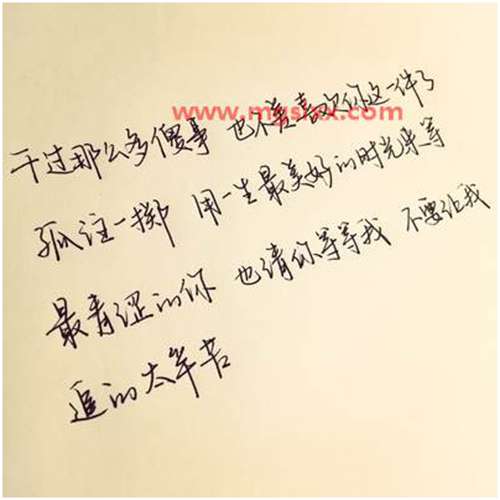 www.mgshxx.com
干过那么多傻事 也不差喜欢你这一件了
孤注一掷 用一生最美好的时光来等
最青涩的你 也请你等等我 不要让我
追的太辛苦